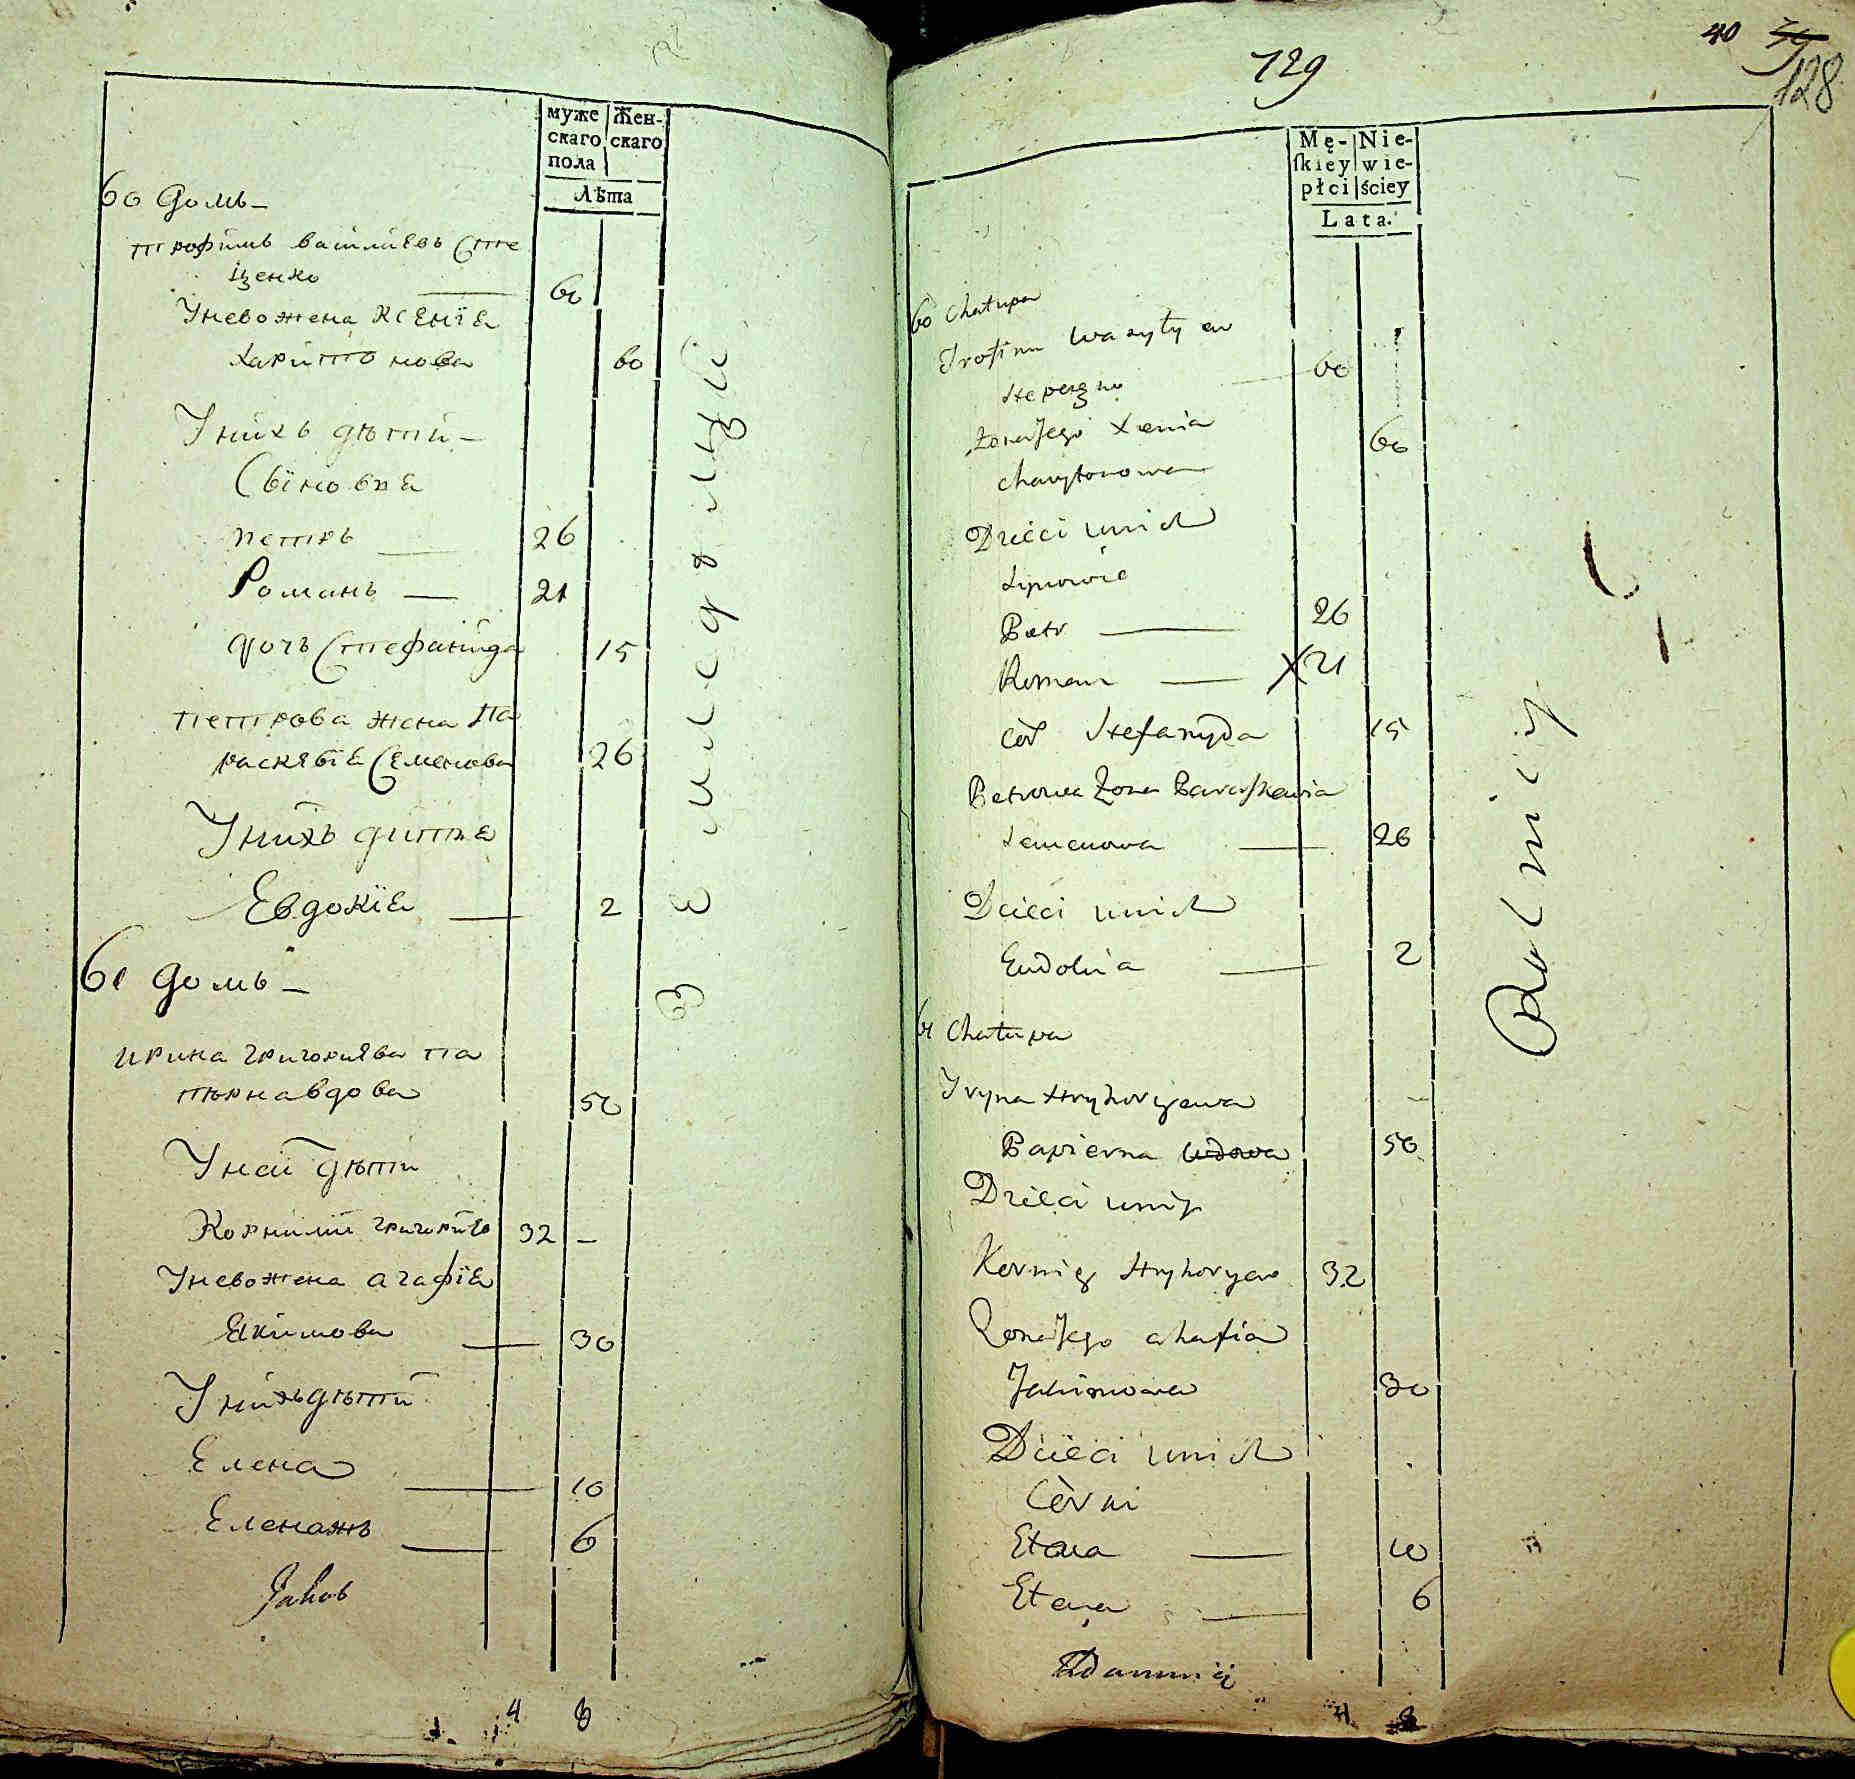 муже Жен-
скаго скаго
пола
Лѣта
60 домъ
трофимъ василиевъ Сте
ценко 60
Унево жена ксения
харитонова 60
Унихъ дѣти
Синовя
петръ 26
Романъ 21
дочъ Стефанида 15
петрова жена Па
раскявия Семенова 26
Унихъ дитя
Евдокїя 2
61 домъ
ирина григориева па
перна вдова 50
Уней дѣти
Корнилий григориевъ 32 —
Унево жена агафїя
Якимова 30
Унихъ дѣти
Елена 10
Елена жъ 6
Jakob
4 8
Земледѣлци
40 39
129
128
Mę- Nie-
ſkiey wie-
płci ściey
Lata.
60 Chatupa
Trofim Wasyły ew
Stepezno 60
Żona Jego Xenia 60
Charytonowa
Dzieci unich
Synowie
Petr 26
Roman X 21
Cór Stefanyda 15
Petrowa Żona Paraskewia
Semenowa 26
Dzieci unich
Eudokia 2
61 Chatupa
Iryna Hryhoryewa
Papierna wdowa 50
Dzieci uniey
Korniey Hryhoryew 32
Żona Jego ahafia
Jakimowa 30
Dzieci unich
Córki
Elena 10
Elena 6
4 8
Rolnicy